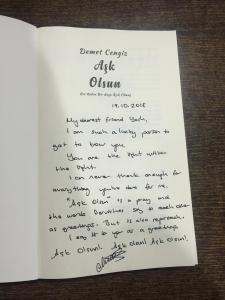 Demet Cengiz
Aşk
Olsun
19.10.2018
My dearest friend
I am such a lucky person to
get to know you.
You are the light within
the light.
I can never thank enough for
everything you've done for me.
"Aşk Olsun" is a pray and
the words Dervishes say to each other
as greetings. But is also reproach.
I say it to you as a greetings
Aşk Olsun! Aşk olsun! Aşk Olsun!